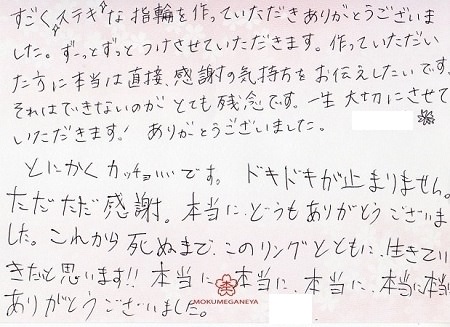 すごくステキな指輪を作っていただきありがとうございま
した。ずーっとずっとつけさせていただきます。作っていただい
た方に本当は直接、感謝の気持ちをお伝えしたいです。
それはできないのがとても残念です。一生大切にさせて
いただきます！ ありがとうございました。
とにかくカッチョいいです。ドキドキが止まりません。
ただただ感謝。本当に、どうもありがとうございま
した。これから死ぬまで、このリングとともに、生きてい
きたいと思います!! 本当に、本当に、本当に、本当に本当に
ありがとうございました。
MOKUMEGANEYA